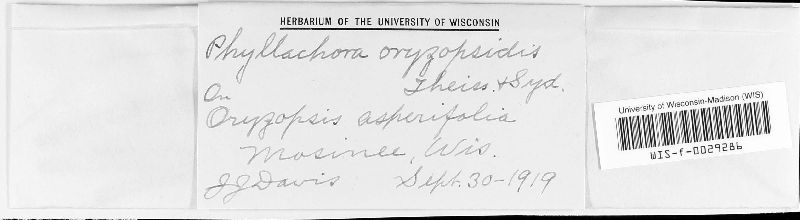 HERBARIUM OF THE UNIVERSITY OF WISCONSIN
Phyllachora oryzopsidis
Theiss. & Syd.
On
Oryzopsis asperifolia
Mosinee, Wis.
JJ Davis Sept. 30-1919
University of Wisconsin-Madison (WIS)
WIS-f-0029286